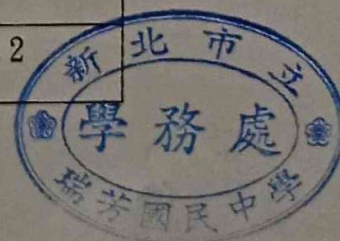 2
新北市立
學務處
瑞芳國民中學